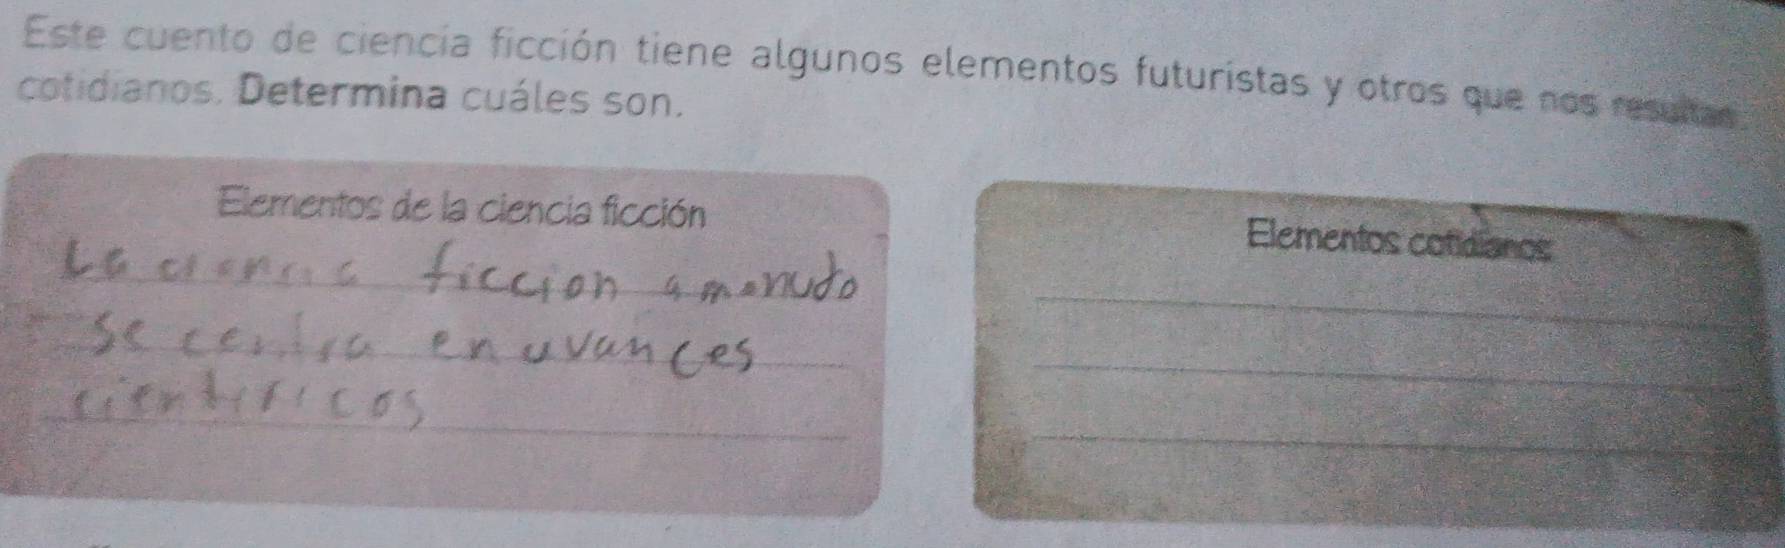 Este cuento de ciencia ficción tiene algunos elementos futuristas y otros que nos resultan
cotidianos. Determina cuáles son.
Elementos de la ciencia ficción
La ciencia ficcion amenudo
se centra en uvances
cientificos
Elementos cotidianos